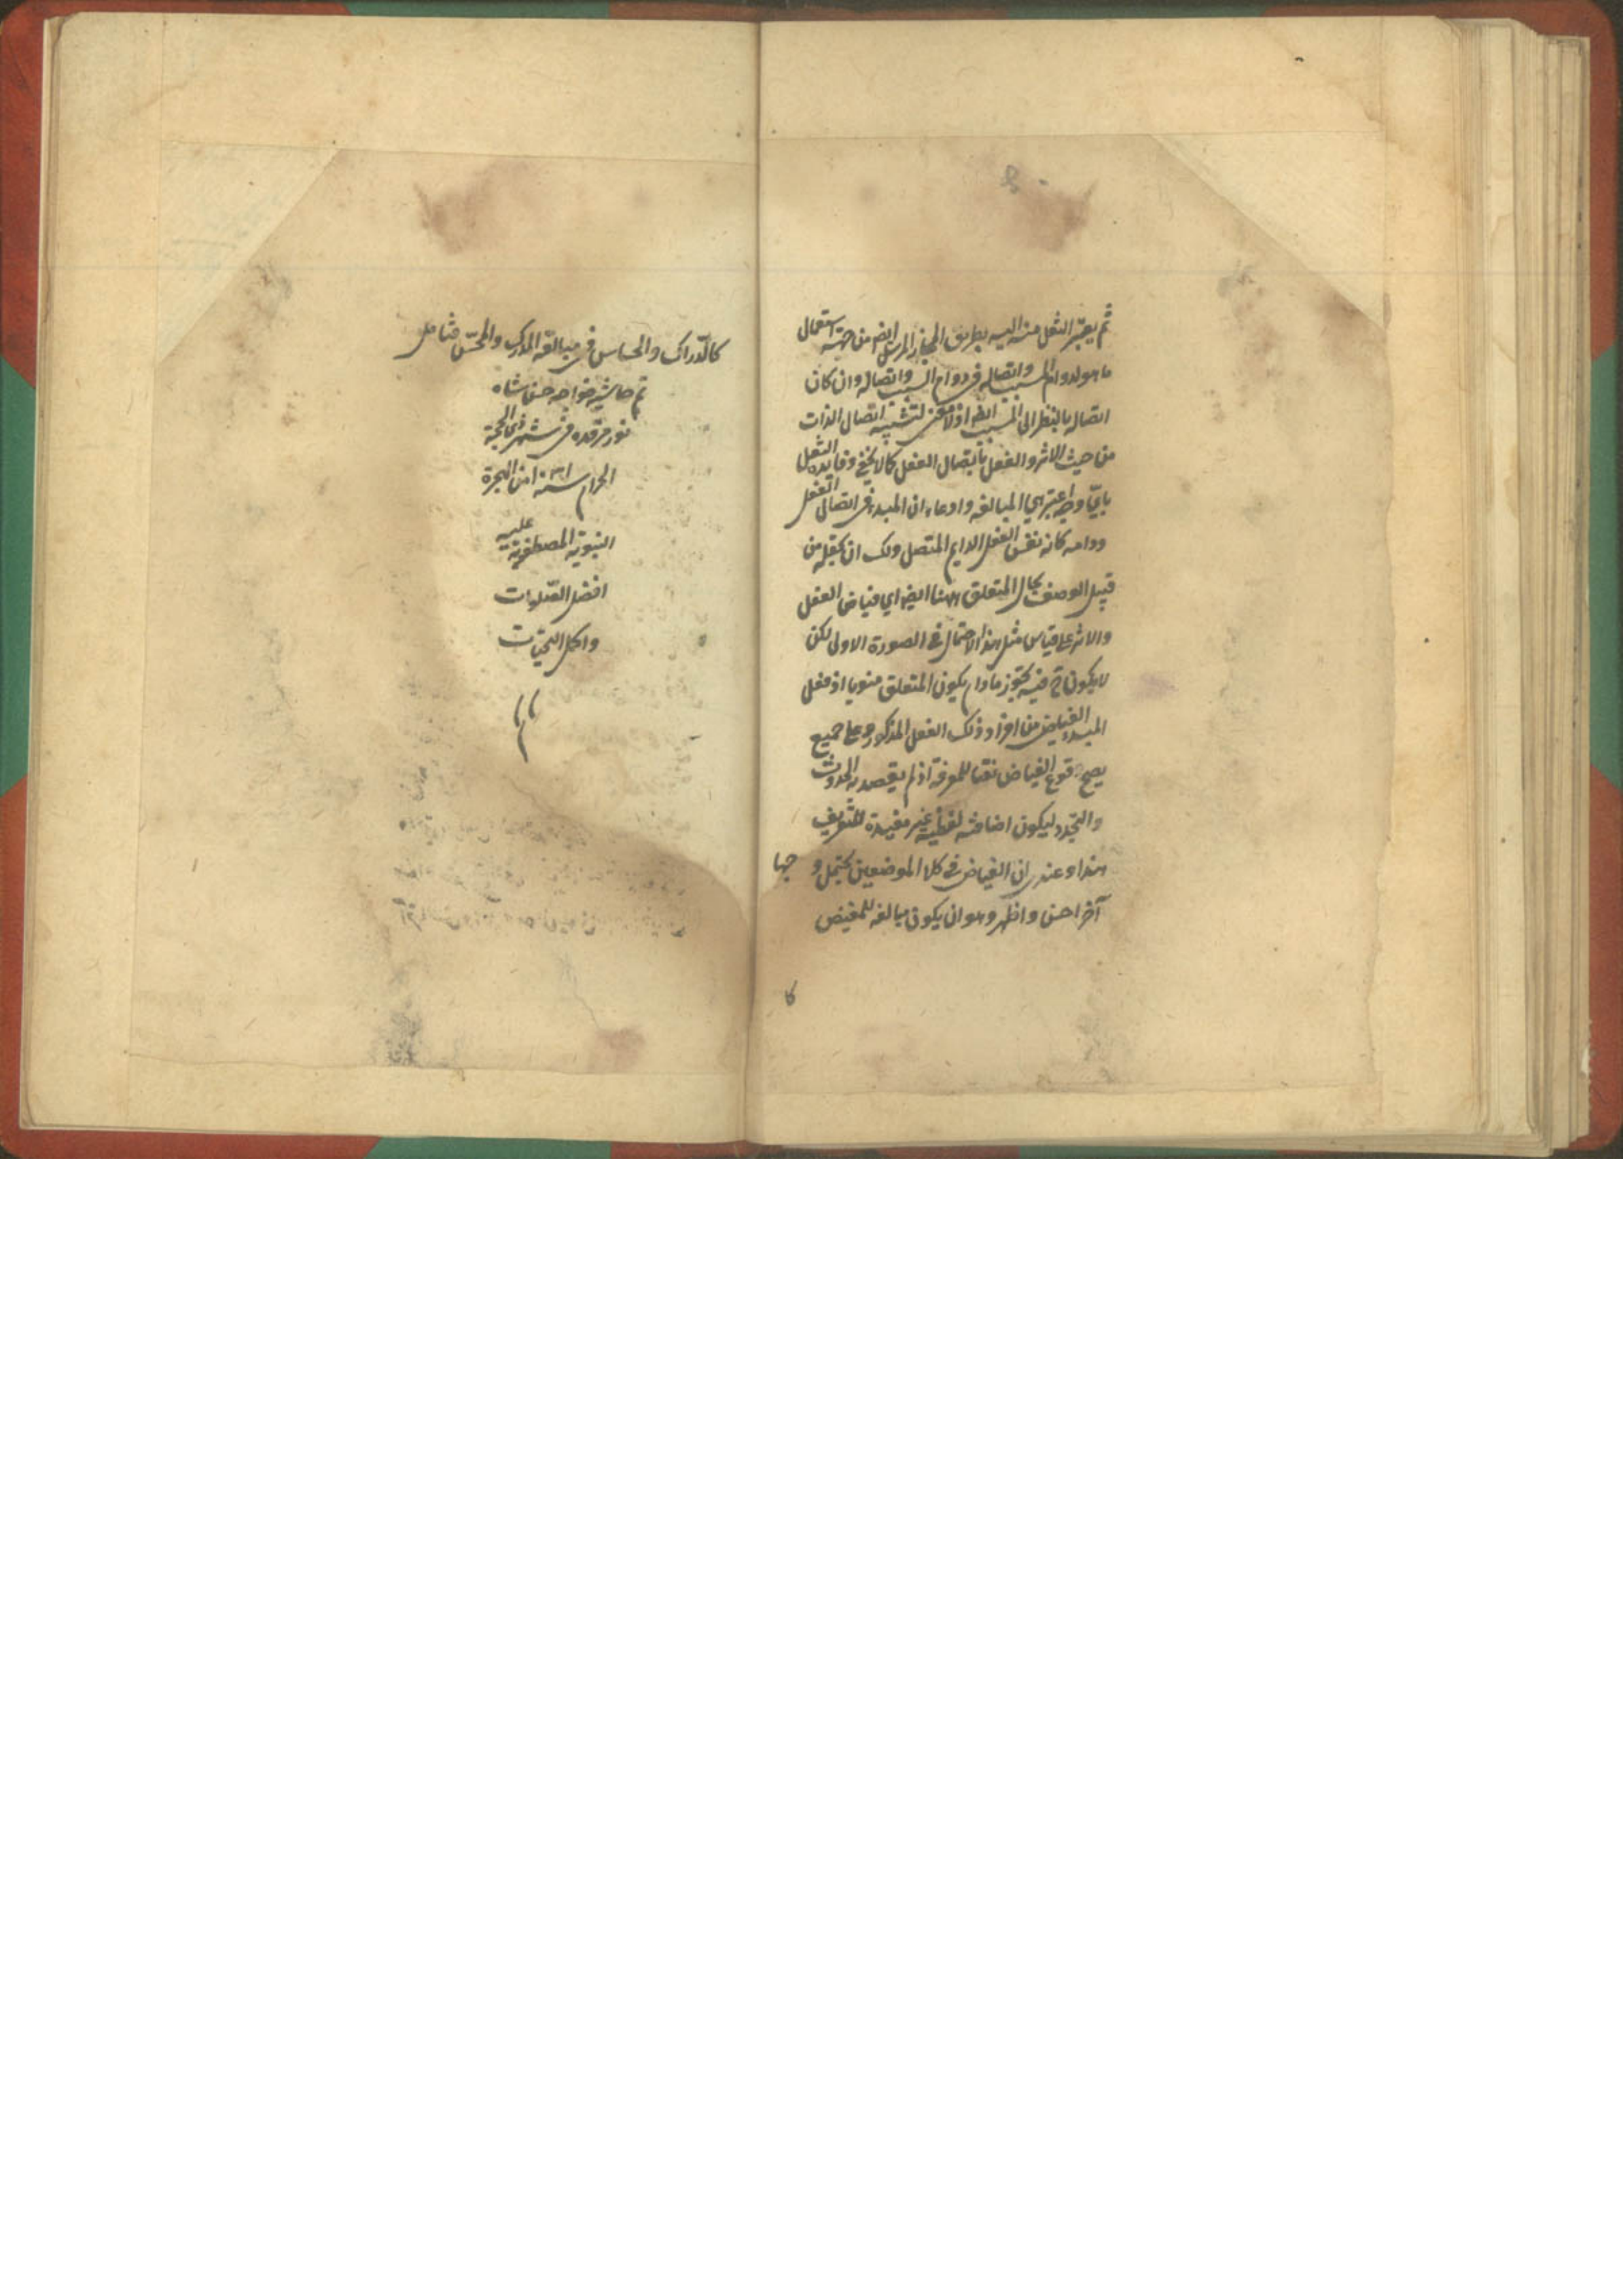 ثم يعتبر النقل منه اليه بطريق المجاز المرسل ايضا من جهة استعمال
ما هو لدوام المسبب واتصاله في دوام السبب واتصاله وان كان
اتصاله بالنظر الى المسبب ايضا اذ لا معنى لتشبيه اتصال الذات
من حيث الاثر والفعل باتصال الفعل كما لا يخفى وفايدة النقل
باي وجه اعتبر هي المبالغة وادعاء ان المبدء في اتصال الفعل
ودوامه كانه نفس الفعل الدايم المتصل ولك ان تجعله من
قبيل الوصف بحال المتعلق ههنا ايضا اي فياض الفعل
والاثر على قياس مثل هذا الاحتمال في الصورة الاولى لكن
لا يكون ح فيه تجوز ما دام يكون المتعلق منويا اذ فعل
المبدء الفياض من افراد ذلك الفعل المذكور وعلى جميع
يصح وقوع الفياض نعتا للمعرفة اذ لم يقصد به الحدوث
والتجدد ليكون اضافته لفظية غير مفيدة للتعريف
هذا وعندي ان الفياض في كلا الموضعين يحتمل و جها
آخر احسن واظهر وهو ان يكون مبالغة للمفيض
كا
كالدراك والحساس في مبالغة المدرك والمحس فتامل
تم حاشيه خواجه حسن شاه
نور مرقده في شهر ذي الحجة
الحرام سنة من الهجرة
النبوية المصطفوية عليه
افضل الصلوات
واكمل التحيات